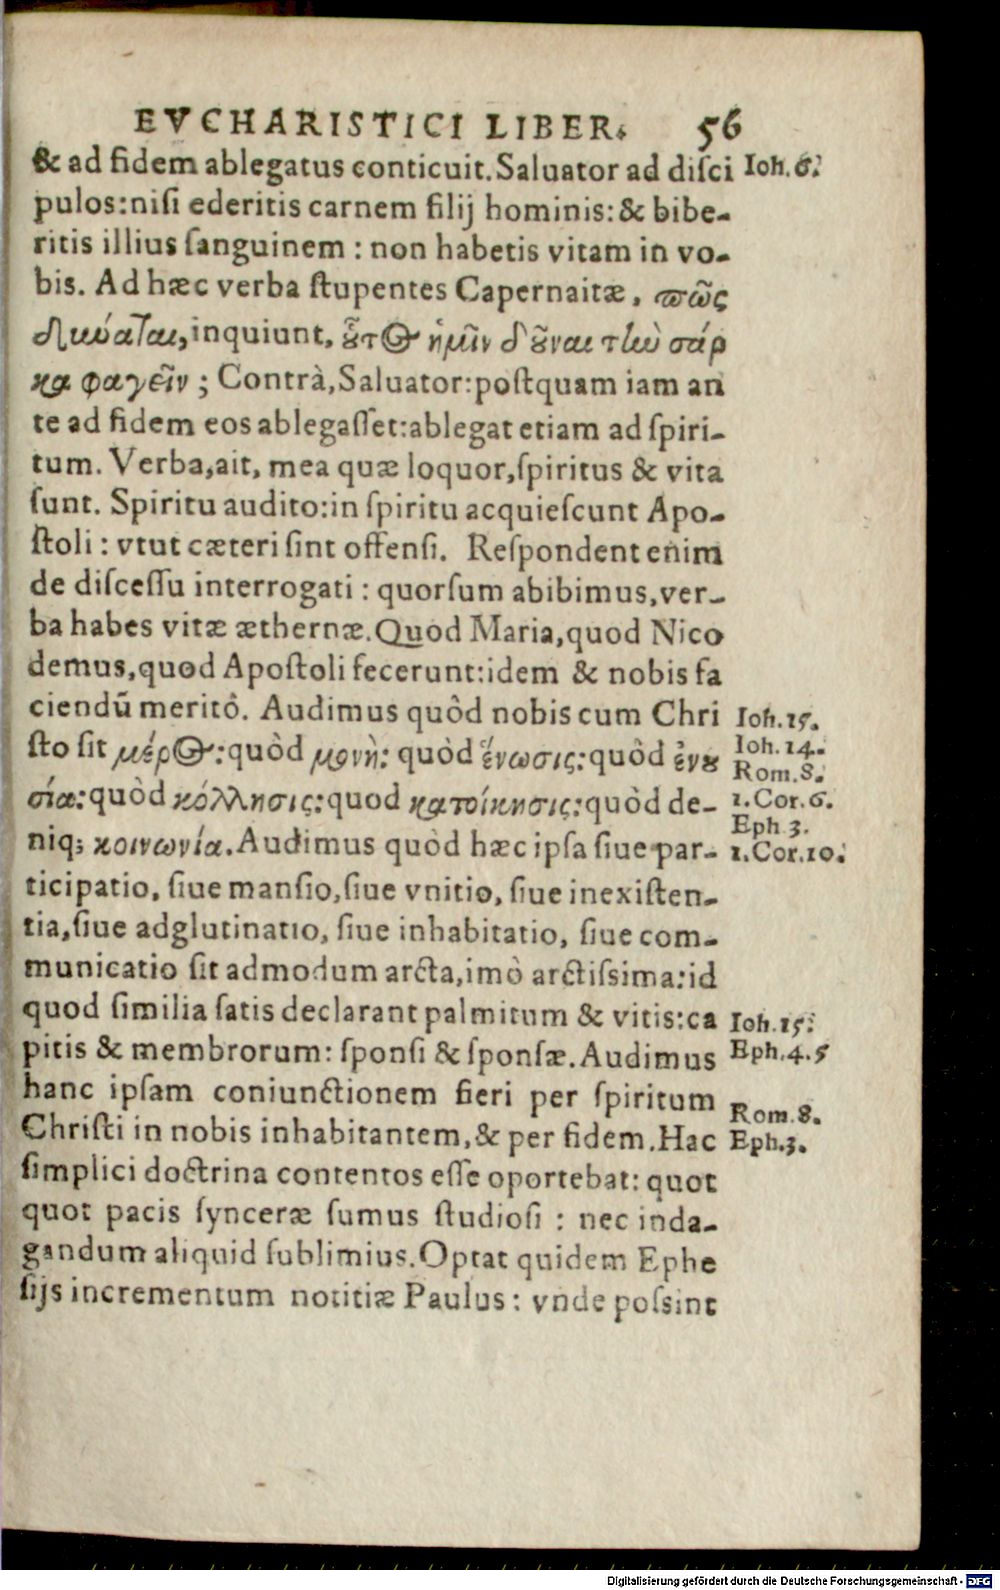 EVCHARISTICI LIBER. 56
& ad fidem ablegatus conticuit. Saluator ad diſci Ioh. 6.
pulos: niſi ederitis carnem filij hominis: & bibe-
ritis illius ſanguinem : non habetis vitam in vo-
bis. Ad hæc verba ſtupentes Capernaitæ, πῶς
δύναται, inquiunt, οὗτος ἡμῖν δοῦναι τὴν σάρ
κα φαγεῖν ; Contrà, Saluator: poſtquam iam an
te ad fidem eos ablegaſſet: ablegat etiam ad ſpiri-
tum. Verba, ait, mea quæ loquor, ſpiritus & vita
ſunt. Spiritu audito: in ſpiritu acquieſcunt Apo-
ſtoli : vtut cæteri ſint offenſi. Reſpondent enim
de diſceſſu interrogati : quorſum abibimus, ver-
ba habes vitæ æthernæ. Quod Maria, quod Nico
demus, quod Apoſtoli fecerunt: idem & nobis fa
ciendū meritò. Audimus quòd nobis cum Chri Ioh. 15.
ſto ſit μέρος: quòd μονὴ: quòd ἕνωσις: quòd ἐνου Ioh. 14.
Rom. 8.
σία: quòd κόλλησις: quod κατοίκησις: quòd de- 1. Cor. 6.
Eph. 3.
niq; κοινωνία. Audimus quòd hæc ipſa ſiue par- 1. Cor. 10.
ticipatio, ſiue manſio, ſiue vnitio, ſiue inexiſten-
tia, ſiue adglutinatio, ſiue inhabitatio, ſiue com-
municatio ſit admodum arcta, imò arctiſsima: id
quod ſimilia ſatis declarant palmitum & vitis: ca Ioh. 15.
pitis & membrorum: ſponſi & ſponſæ. Audimus Eph. 4. 5
hanc ipſam coniunctionem fieri per ſpiritum Rom. 8.
Chriſti in nobis inhabitantem, & per fidem. Hac Eph. 3.
ſimplici doctrina contentos eſſe oportebat: quot
quot pacis ſynceræ ſumus ſtudioſi : nec inda-
gandum aliquid ſublimius. Optat quidem Ephe
ſijs incrementum notitiæ Paulus : vnde poſsint
Digitalisierung gefördert durch die Deutsche Forschungsgemeinschaft - DFG